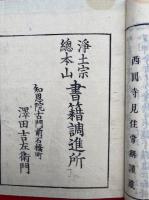 西圓寺見住常
淨土宗
總本山
書籍調進所
知恩院古門前石橋町
澤田吉左衛門